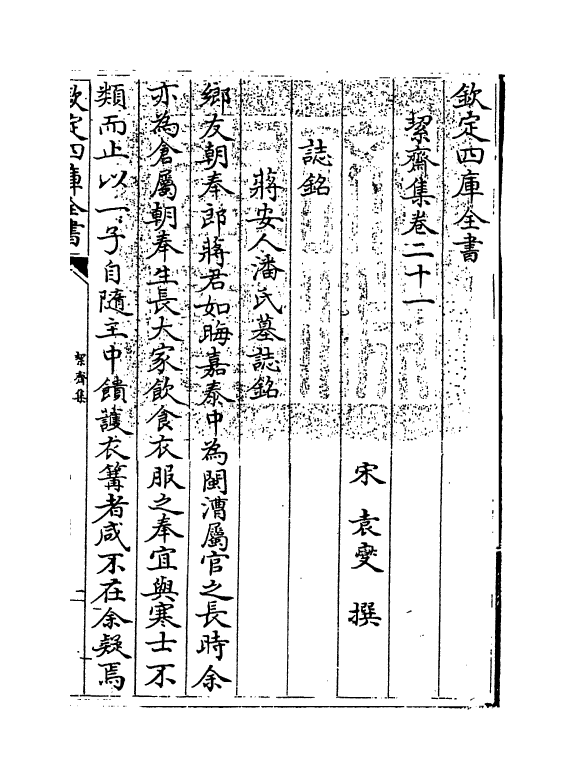 欽定四庫全書
絜齋集卷二十一
宋 袁燮 撰
誌銘
蔣安人潘氏墓誌銘
鄉友朝奉郎蔣君如晦嘉泰中為閩漕屬官之長時余
亦為倉屬朝奉生長大家飲食衣服之奉宜與寒士不
類而止以一子自隨主中饋護衣篝者咸不在余疑焉
欽定四庫全書
絜齋集